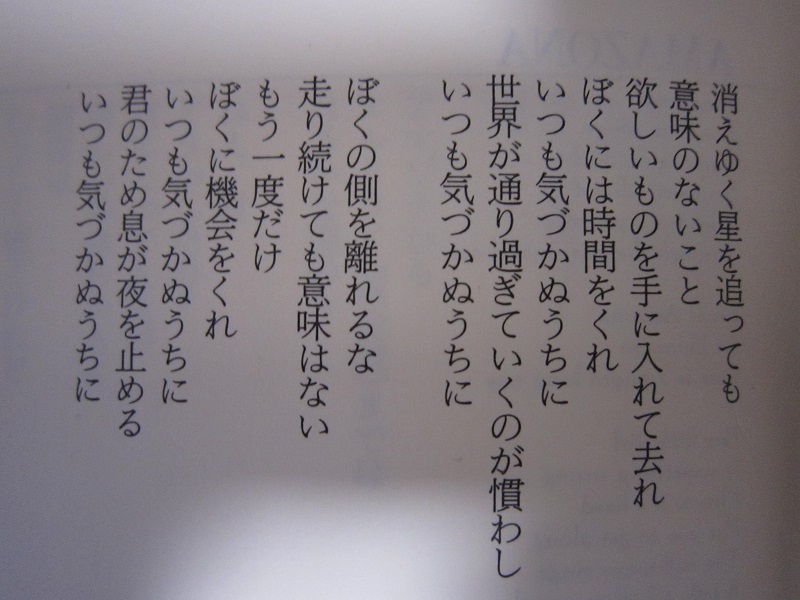 消えゆく星を追っても
意味のないこと
欲しいものを手に入れて去れ
ぼくには時間をくれ
いつも気づかぬうちに
世界が通り過ぎていくのが慣わし
いつも気づかぬうちに
ぼくの側を離れるな
走り続けても意味はない
もう一度だけ
ぼくに機会をくれ
いつも気づかぬうちに
君のため息が夜を止める
いつも気づかぬうちに